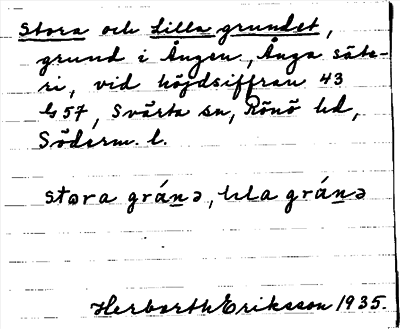 Stora och Lilla grundet,
grund i Ängen, Ånga säte-
ri, vid höjdsiffran 43
G 57, Svärta sn, Rönö hd,
Söderm. l.
stora gránə, lɩla gránə
Herbarth Eriksson 1935.